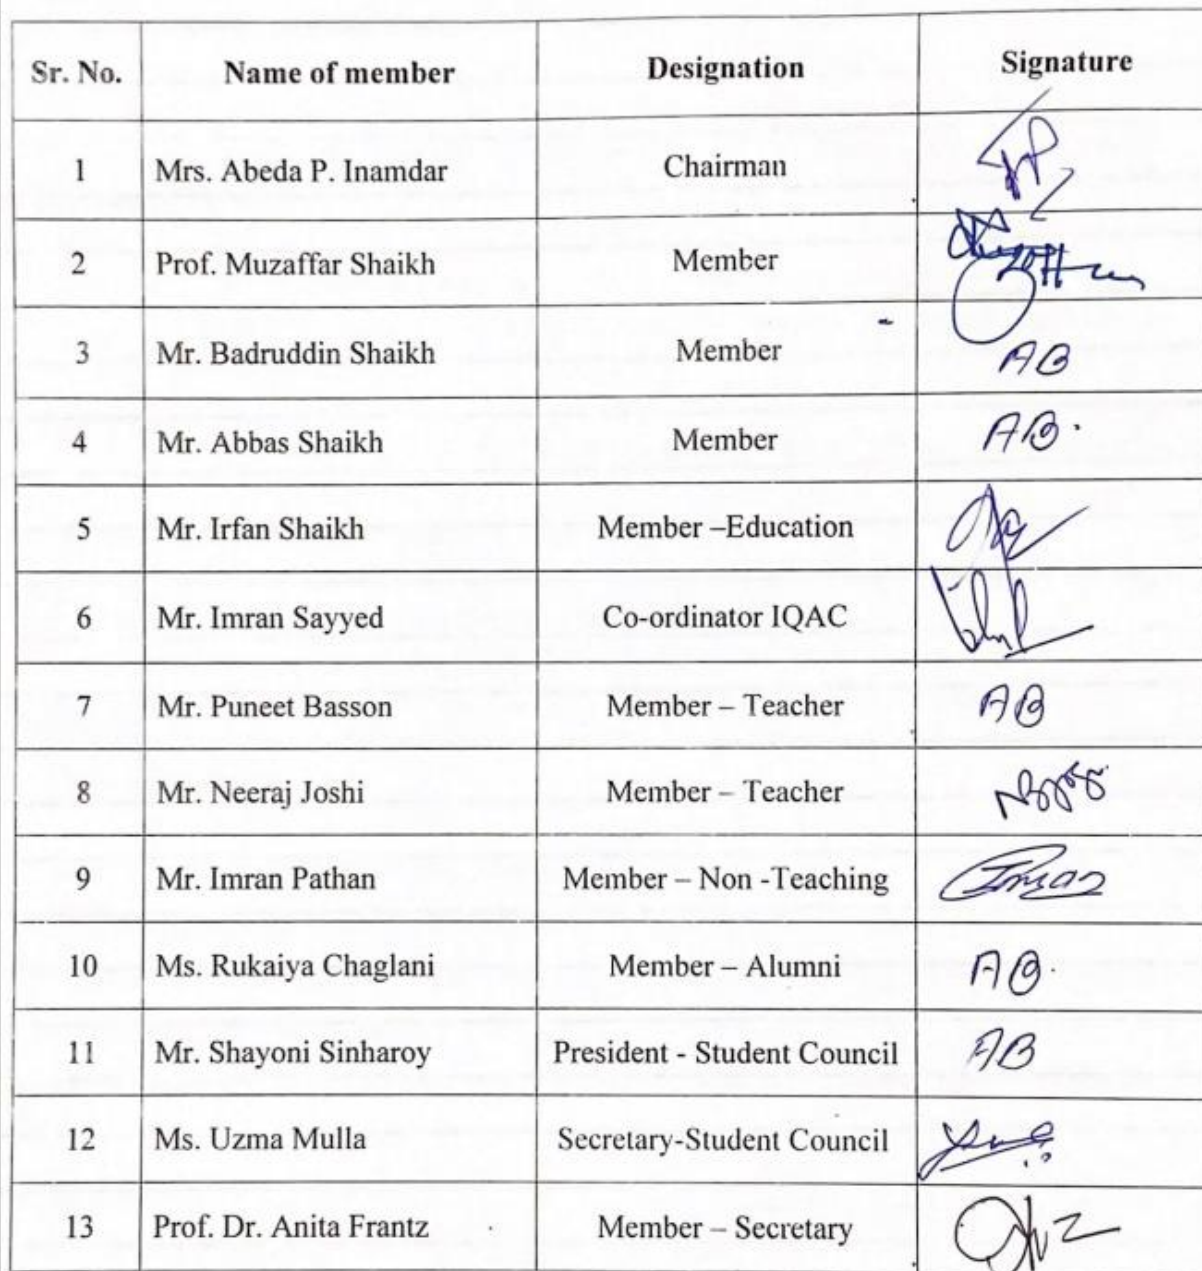 Sr. No. Name of member Designation Signature
1 Mrs. Abeda P. Inamdar Chairman
2 Prof. Muzaffar Shaikh Member
3 Mr. Badruddin Shaikh Member AB
4 Mr. Abbas Shaikh Member AB.
5 Mr. Irfan Shaikh Member –Education
6 Mr. Imran Sayyed Co-ordinator IQAC
7 Mr. Puneet Basson Member – Teacher AB
8 Mr. Neeraj Joshi Member – Teacher
9 Mr. Imran Pathan Member – Non -Teaching
10 Ms. Rukaiya Chaglani Member – Alumni AB.
11 Mr. Shayoni Sinharoy President - Student Council AB
12 Ms. Uzma Mulla Secretary-Student Council
13 Prof. Dr. Anita Frantz Member – Secretary